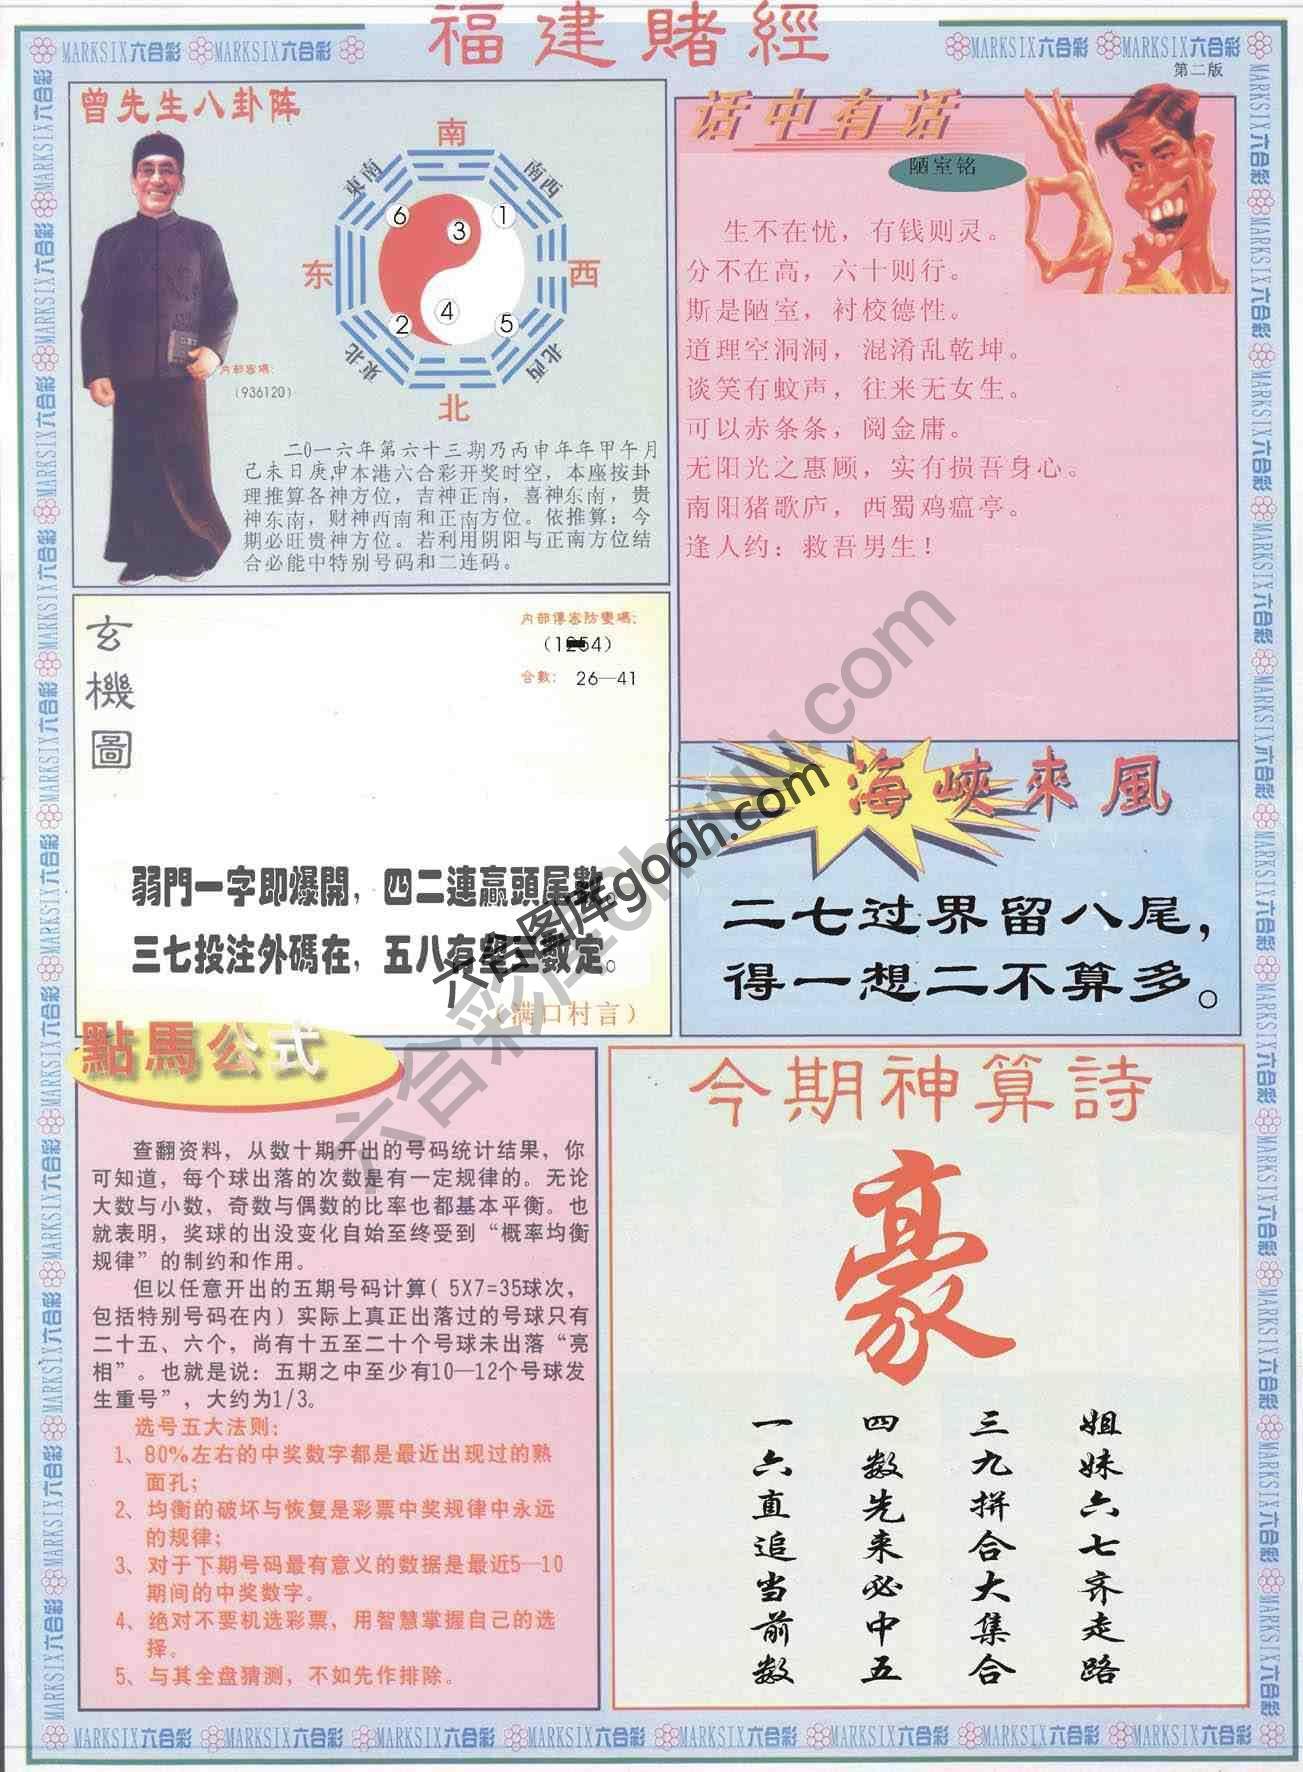 福建賭經
MARKSIX六合彩 MARKSIX六合彩
MARKSIX六合彩 MARKSIX六合彩
第二版
曾先生八卦阵
南
東南
南西
6
3
1
东
西
2
4
5
東北
北西
北
内部密碼：
(936120)
二0一六年第六十三期乃丙申年年甲午月
己未日庚申本港六合彩开奖时空，本座按卦
理推算各神方位，吉神正南，喜神东南，贵
神东南，财神西南和正南方位。依推算：今
期必旺贵神方位。若利用阴阳与正南方位结
合必能中特别号码和二连码。
话中有话
陋室铭
生不在忧，有钱则灵。
分不在高，六十则行。
斯是陋室，衬校德性。
道理空洞洞，混淆乱乾坤。
谈笑有蚊声，往来无女生。
可以赤条条，阅金庸。
无阳光之惠顾，实有损吾身心。
南阳猪歌庐，西蜀鸡瘟亭。
逢人约：救吾男生！
玄機圖
内部傳密防變碼：
合數： 26—41
弱門一字即爆開，四二連贏頭尾數。
三七投注外碼在，五八有望三數定。
（满口村言）
海峽來風
二七过界留八尾，
得一想二不算多。
點馬公式
查翻资料，从数十期开出的号码统计结果，你
可知道，每个球出落的次数是有一定规律的。无论
大数与小数，奇数与偶数的比率也都基本平衡。也
就表明，奖球的出没变化自始至终受到“概率均衡
规律”的制约和作用。
但以任意开出的五期号码计算( 5X7=35球次，
包括特别号码在内）实际上真正出落过的号球只有
二十五、六个，尚有十五至二十个号球未出落“亮
相”。也就是说：五期之中至少有10—12个号球发
生重号”，大约为1/3。
选号五大法则：
1、80%左右的中奖数字都是最近出现过的熟
面孔；
2、均衡的破坏与恢复是彩票中奖规律中永远
的规律；
3、对于下期号码最有意义的数据是最近5—10
期间的中奖数字。
4、绝对不要机选彩票，用智慧掌握自己的选
择。
5、与其全盘猜测，不如先作排除。
今期神算詩
豪
姐妹六七齐走路
三九拼合大集合
四数先来必中五
一六直追当前数
六合图库go6h.com
MARKSIX六合彩 MARKSIX六合彩 MARKSIX六合彩 MARKSIX六合彩 MARKSIX六合彩 MARKSIX六合彩 MARKSIX六合彩 MARKSIX六合彩